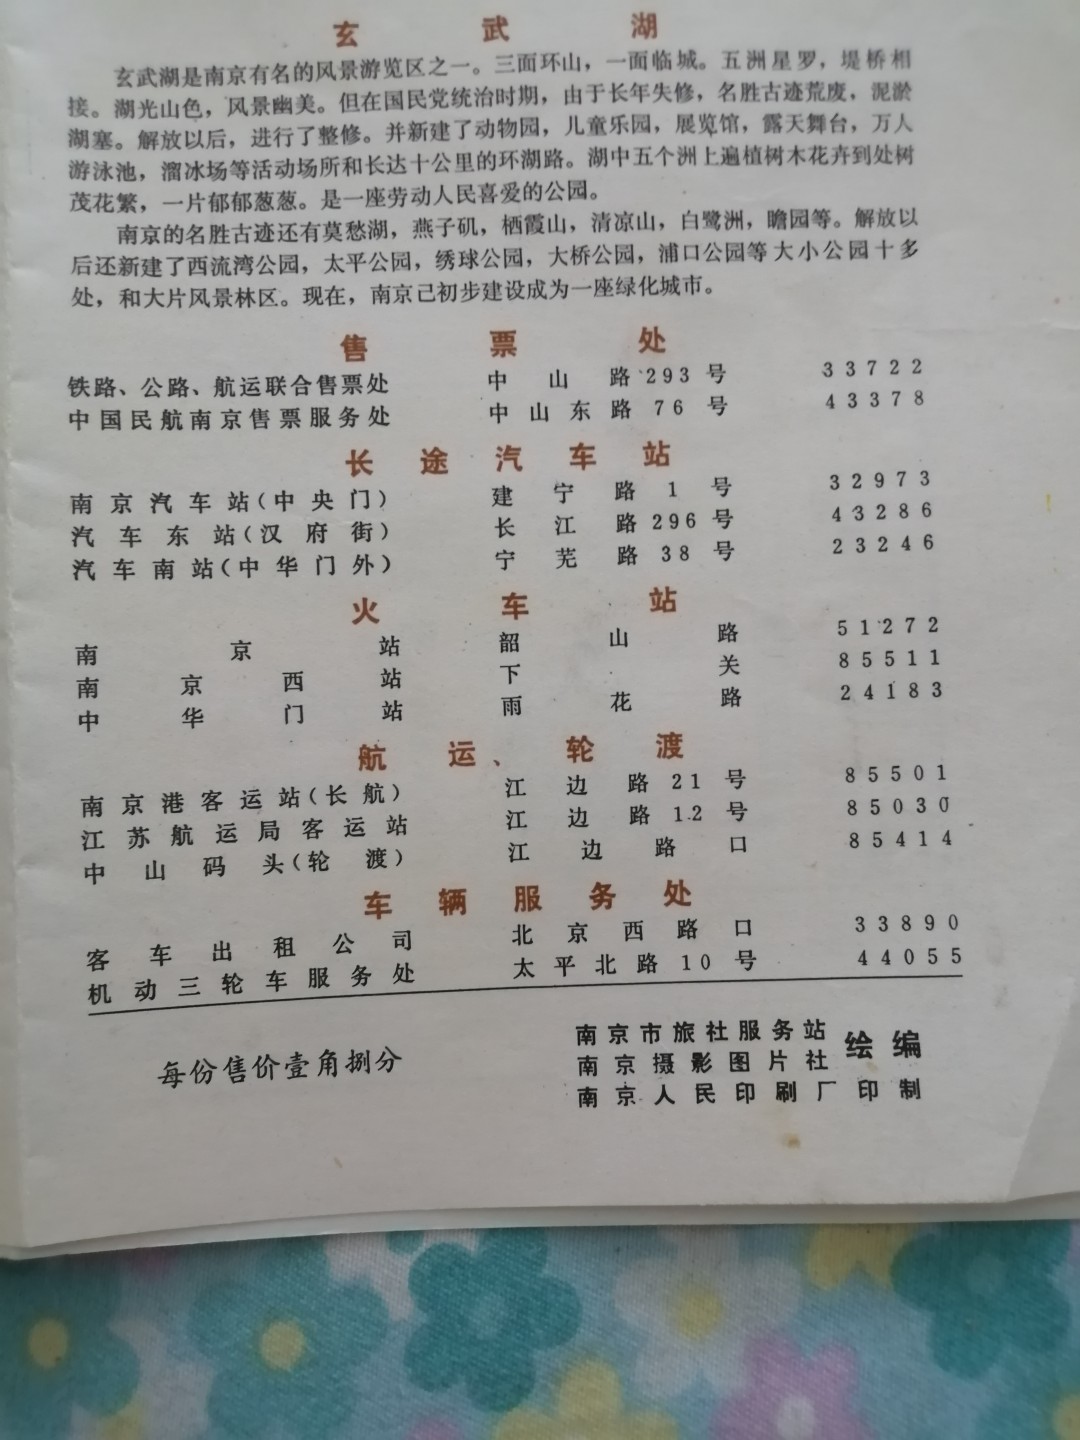 玄武湖
玄武湖是南京有名的风景游览区之一。三面环山，一面临城。五洲星罗，堤桥相
接。湖光山色，风景幽美。但在国民党统治时期，由于长年失修，名胜古迹荒废，泥淤
湖塞。解放以后，进行了整修。并新建了动物园，儿童乐园，展览馆，露天舞台，万人
游泳池，溜冰场等活动场所和长达十公里的环湖路。湖中五个洲上遍植树木花卉到处树
茂花繁，一片郁郁葱葱。是一座劳动人民喜爱的公园。
南京的名胜古迹还有莫愁湖，燕子矶，栖霞山，清凉山，白鹭洲，瞻园等。解放以
后还新建了西流湾公园，太平公园，绣球公园，大桥公园，浦口公园等大小公园十多
处，和大片风景林区。现在，南京已初步建设成为一座绿化城市。
售票处
铁路、公路、航运联合售票处 中山路293号 33722
中国民航南京售票服务处 中山东路76号 43378
长途汽车站
南京汽车站(中央门) 建宁路1号 32973
汽车东站(汉府街) 长江路296号 43286
汽车南站(中华门外) 宁芜路38号 23246
火车站
南京站 韶山路 51272
南京西站 下关 85511
中华门站 雨花路 24183
航运、轮渡
南京港客运站(长航) 江边路21号 85501
江苏航运局客运站 江边路12号 85030
中山码头(轮渡) 江边路口 85414
车辆服务处
客车出租公司 北京西路口 33890
机动三轮车服务处 太平北路10号 44055
每份售价壹角捌分
南京市旅社服务站
南京摄影图片社 绘编
南京人民印刷厂印制